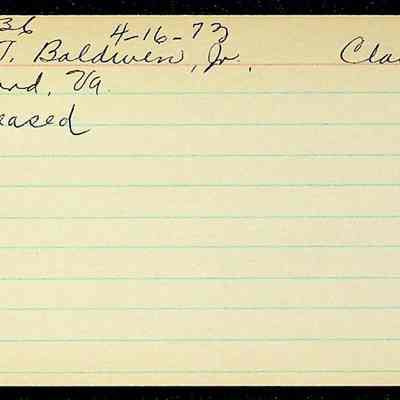 36 4-16-73
T. Baldwin, Jr. Cla
ard, Va.
eased